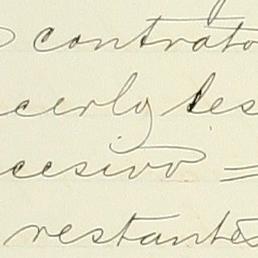 contrato
cerlo tes
cesivo =
restantes